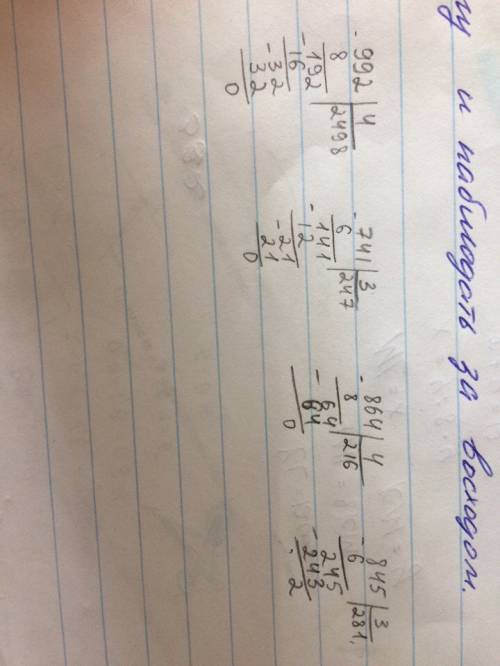 и наблюдать за восходом.
-992|4
8 |2498
-192
16
-32
32
0
-741|3
6 |247
-141
12
-21
21
0
-864|4
8 |216
-64
64
0
845|3
-6 |281,
245
-243
2